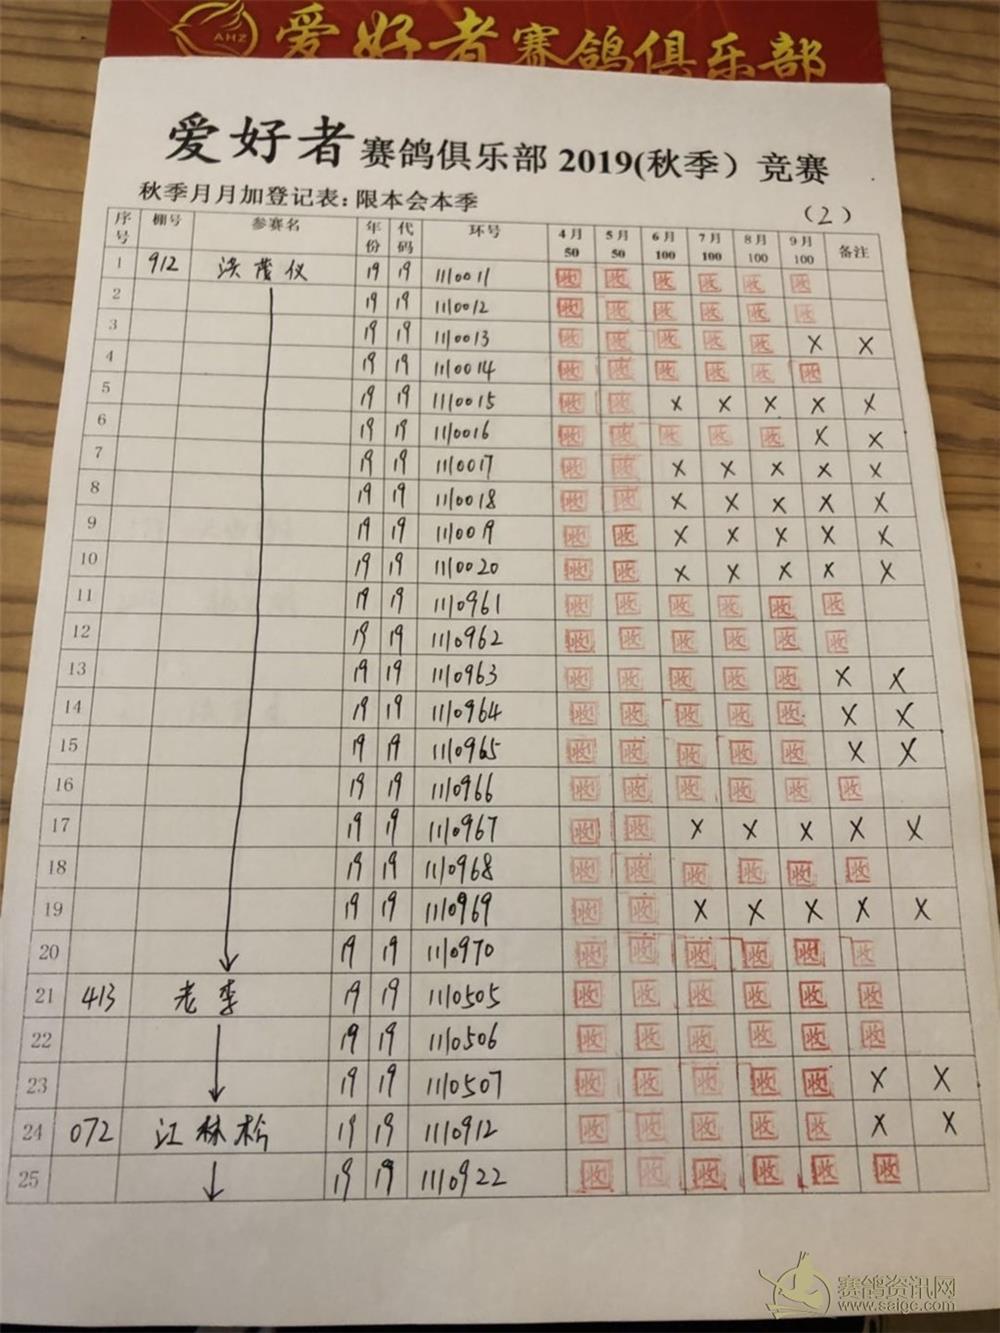 AHZ 爱好者赛鸽俱乐部
爱好者赛鸽俱乐部2019(秋季）竞赛
秋季月月加登记表：限本会本季 （2）
序号 棚号 参赛名 年份 代码 环号 4月50 5月50 6月100 7月100 8月100 9月100 备注
1 912 洪 仪 19 19 1110011 收 收 收 收 收 收
2 19 19 1110012 收 收 收 收 收 收
3 19 19 1110013 收 收 收 收 收 X X
4 19 19 1110014 收 收 收 收 收 收
5 19 19 1110015 收 收 X X X X X
6 19 19 1110016 收 收 收 收 收 X X
7 19 19 1110017 收 收 X X X X X
8 19 19 1110018 收 收 X X X X X
9 19 19 1110019 收 收 X X X X X
10 19 19 1110020 收 收 X X X X X
11 19 19 1110961 收 收 收 收 收 收
12 19 19 1110962 收 收 收 收 收 收
13 19 19 1110963 收 收 收 收 收 X X
14 19 19 1110964 收 收 收 收 收 X X
15 19 19 1110965 收 收 收 收 收 X X
16 19 19 1110966 收 收 收 收 收 收
17 19 19 1110967 收 收 X X X X X
18 19 19 1110968 收 收 收 收 收 收
19 19 19 1110969 收 收 X X X X X
20 19 19 1110970 收 收 收 收 收 收
21 413 老李 19 19 1110505 收 收 收 收 收 收
22 19 19 1110506 收 收 收 收 收 收
23 19 19 1110507 收 收 收 收 收 X X
24 072 江林松 19 19 1110912 收 收 收 收 收 X X
25 19 19 1110922 收 收 收 收 收 收
赛鸽资讯网
www.saigc.com